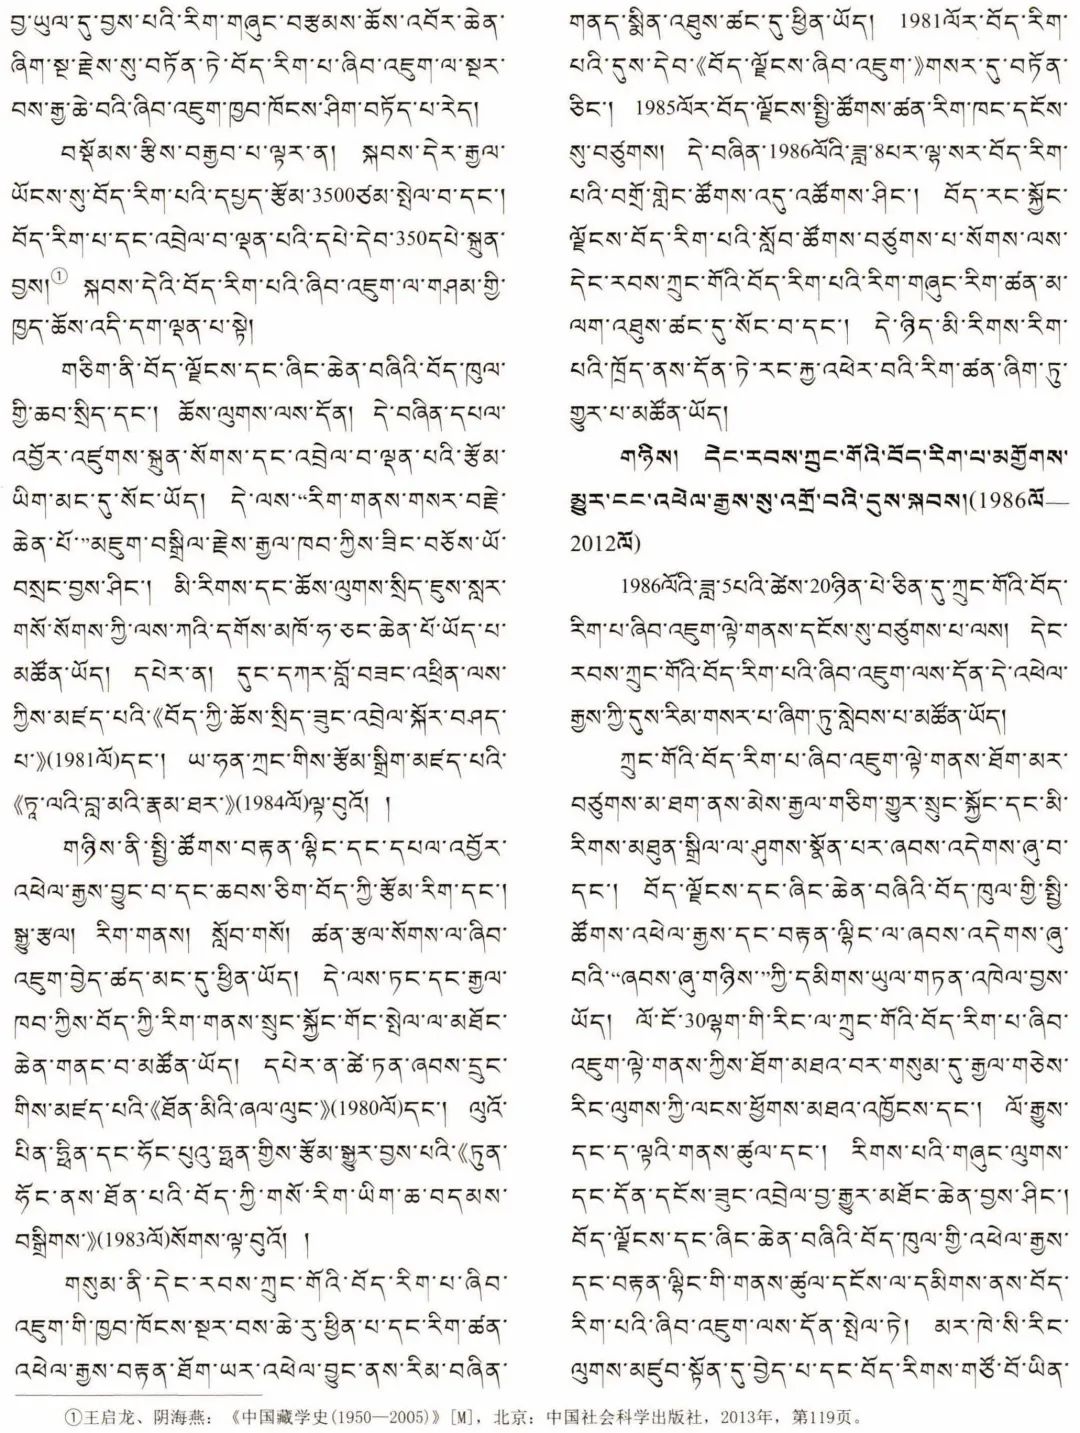 བྱ་ཡུལ་དུ་བྱས་པའི་རིག་གཞུང་བརྩམས་ཆོས་འབོར་ཆེན་
ཞིག་སྔ་རྗེས་སུ་བཏོན་ཏེ་བོད་རིག་པ་ཞིབ་འཇུག་ལ་སྔར་
བས་རྒྱ་ཆེ་བའི་ཞིབ་འཇུག་ཁྱབ་ཁོངས་ཤིག་བཏོད་པ་རེད།
བསྡོམས་རྩིས་བརྒྱབ་པ་ལྟར་ན། སྐབས་དེར་རྒྱལ་
ཡོངས་སུ་བོད་རིག་པའི་དཔྱད་རྩོམ་3500ཙམ་སྤེལ་བ་དང་།
བོད་རིག་པ་དང་འབྲེལ་བ་ལྡན་པའི་དཔེ་དེབ་350དཔེ་སྐྲུན་
བྱས།① སྐབས་དེའི་བོད་རིག་པའི་ཞིབ་འཇུག་ལ་གཤམ་གྱི་
ཁྱད་ཆོས་འདི་དག་ལྡན་པ་སྟེ།
གཅིག་ནི་བོད་ལྗོངས་དང་ཞིང་ཆེན་བཞིའི་བོད་ཁུལ་
གྱི་ཆབ་སྲིད་དང་། ཆོས་ལུགས་ལས་དོན། དེ་བཞིན་དཔལ་
འབྱོར་འཛུགས་སྐྲུན་སོགས་དང་འབྲེལ་བ་ལྡན་པའི་རྩོམ་
ཡིག་མང་དུ་སོང་ཡོད། དེ་ལས་“རིག་གནས་གསར་བརྗེ་
ཆེན་པོ་”མཇུག་བསྒྲིལ་རྗེས་རྒྱལ་ཁབ་ཀྱིས་ཟིང་བཅོས་ཡོ་
བསྲང་བྱས་ཤིང་། མི་རིགས་དང་ཆོས་ལུགས་སྲིད་ཇུས་སླར་
གསོ་སོགས་ཀྱི་ལས་ཀའི་དགོས་མཁོ་ཧ་ཅང་ཆེན་པོ་ཡོད་པ་
མཚོན་ཡོད། དཔེར་ན། དུང་དཀར་བློ་བཟང་འཕྲིན་ལས་
ཀྱིས་མཛད་པའི་《བོད་ཀྱི་ཆོས་སྲིད་ཟུང་འབྲེལ་སྐོར་བཤད་
པ་》(1981ལོ)དང་། ཡ་ཧན་ཀྲང་གིས་རྩོམ་སྒྲིག་མཛད་པའི་
《ཏཱ་ལའི་བླ་མའི་རྣམ་ཐར་》(1984ལོ)ལྟ་བུའོ། །
གཉིས་ནི་སྤྱི་ཚོགས་བརྟན་ལྷིང་དང་དཔལ་འབྱོར་
འཕེལ་རྒྱས་བྱུང་བ་དང་ཆབས་ཅིག་བོད་ཀྱི་རྩོམ་རིག་དང་།
སྒྱུ་རྩལ། རིག་གནས། སློབ་གསོ། ཚན་རྩལ་སོགས་ལ་ཞིབ་
འཇུག་བྱེད་ཚད་མང་དུ་ཕྱིན་ཡོད། དེ་ལས་ཏང་དང་རྒྱལ་
ཁབ་ཀྱིས་བོད་ཀྱི་རིག་གནས་སྲུང་སྐྱོང་གོང་སྤེལ་ལ་མཐོང་
ཆེན་གནང་བ་མཚོན་ཡོད། དཔེར་ན་ཚེ་ཏན་ཞབས་དྲུང་
གིས་མཛད་པའི་《ཐོན་མིའི་ཞལ་ལུང་》(1980ལོ)དང་། ལུའོ་
པིན་ཧྥིན་དང་ཧོང་པུའུ་ཧྥན་གྱིས་རྩོམ་སྒྱུར་བྱས་པའི་《ཏུན་
ཧོང་ནས་ཐོན་པའི་བོད་ཀྱི་གསོ་རིག་ཡིག་ཆ་བདམས་
བསྒྲིགས་》(1983ལོ)སོགས་ལྟ་བུའོ། །
གསུམ་ནི་དེང་རབས་ཀྲུང་གོའི་བོད་རིག་པ་ཞིབ་
འཇུག་གི་ཁྱབ་ཁོངས་སྔར་བས་ཆེ་རུ་ཕྱིན་པ་དང་རིག་ཚན་
འཕེལ་རྒྱས་བརྟན་ཐོག་ཡར་འཕེལ་བྱུང་ནས་རིམ་བཞིན་
གནད་སྨིན་འཐུས་ཚང་དུ་ཕྱིན་ཡོད། 1981ལོར་བོད་རིག་
པའི་དུས་དེབ་《བོད་ལྗོངས་ཞིབ་འཇུག་》གསར་དུ་བཏོན་
ཅིང་། 1985ལོར་བོད་ལྗོངས་སྤྱི་ཚོགས་ཚན་རིག་ཁང་དངོས་
སུ་བཙུགས། དེ་བཞིན་1986ལོའི་ཟླ་8པར་ལྷ་སར་བོད་རིག་
པའི་བགྲོ་གླེང་ཚོགས་འདུ་འཚོགས་ཤིང་། བོད་རང་སྐྱོང་
ལྗོངས་བོད་རིག་པའི་སློབ་ཚོགས་བཙུགས་པ་སོགས་ལས་
དེང་རབས་ཀྲུང་གོའི་བོད་རིག་པའི་རིག་གཞུང་རིག་ཚན་མ་
ལག་འཐུས་ཚང་དུ་སོང་བ་དང་། དེ་ཉིད་མི་རིགས་རིག་
པའི་ཁྲོད་ནས་དོན་ཏེ་རང་རྐྱ་འཕེར་བའི་རིག་ཚན་ཞིག་ཏུ་
གྱུར་པ་མཚོན་ཡོད།
གཉིས། དེང་རབས་ཀྲུང་གོའི་བོད་རིག་པ་མགྱོགས་
མྱུར་ངང་འཕེལ་རྒྱས་སུ་འགྲོ་བའི་དུས་སྐབས།(1986ལོ—
2012ལོ)
1986ལོའི་ཟླ་5པའི་ཚེས་20ཉིན་པེ་ཅིན་དུ་ཀྲུང་གོའི་བོད་
རིག་པ་ཞིབ་འཇུག་ལྟེ་གནས་དངོས་སུ་བཙུགས་པ་ལས། དེང་
རབས་ཀྲུང་གོའི་བོད་རིག་པའི་ཞིབ་འཇུག་ལས་དོན་དེ་འཕེལ་
རྒྱས་ཀྱི་དུས་རིམ་གསར་པ་ཞིག་ཏུ་སླེབས་པ་མཚོན་ཡོད།
ཀྲུང་གོའི་བོད་རིག་པ་ཞིབ་འཇུག་ལྟེ་གནས་ཐོག་མར་
བཙུགས་མ་ཐག་ནས་མེས་རྒྱལ་གཅིག་གྱུར་སྲུང་སྐྱོང་དང་མི་
རིགས་མཐུན་སྒྲིལ་ལ་ཤུགས་སྣོན་པར་ཞབས་འདེགས་ཞུ་བ་
དང་། བོད་ལྗོངས་དང་ཞིང་ཆེན་བཞིའི་བོད་ཁུལ་གྱི་སྤྱི་
ཚོགས་འཕེལ་རྒྱས་དང་བརྟན་ལྷིང་ལ་ཞབས་འདེགས་ཞུ་
བའི་“ཞབས་ཞུ་གཉིས་”ཀྱི་དམིགས་ཡུལ་གཏན་འཁེལ་བྱས་
ཡོད། ལོ་ངོ་30ལྷག་གི་རིང་ལ་ཀྲུང་གོའི་བོད་རིག་པ་ཞིབ་
འཇུག་ལྟེ་གནས་ཀྱིས་ཐོག་མཐའ་བར་གསུམ་དུ་རྒྱལ་གཅེས་
རིང་ལུགས་ཀྱི་ལངས་ཕྱོགས་མཐའ་འཁྱོངས་དང་། ལོ་རྒྱུས་
དང་ད་ལྟའི་གནས་ཚུལ་དང་། རིགས་པའི་གཞུང་ལུགས་
དང་དོན་དངོས་ཟུང་འབྲེལ་བྱ་རྒྱུར་མཐོང་ཆེན་བྱས་ཤིང་།
བོད་ལྗོངས་དང་ཞིང་ཆེན་བཞིའི་བོད་ཁུལ་གྱི་འཕེལ་རྒྱས་
དང་བརྟན་ལྷིང་གི་གནས་ཚུལ་དངོས་ལ་དམིགས་ནས་བོད་
རིག་པའི་ཞིབ་འཇུག་ལས་དོན་སྤེལ་ཏེ། མར་ཁེ་སི་རིང་
ལུགས་མཛུབ་སྟོན་དུ་བྱེད་པ་དང་བོད་རིགས་གཙོ་བོ་ཡིན་
①王启龙、阴海燕：《中国藏学史(1950—2005)》[M]，北京：中国社会科学出版社，2013年，第119页。